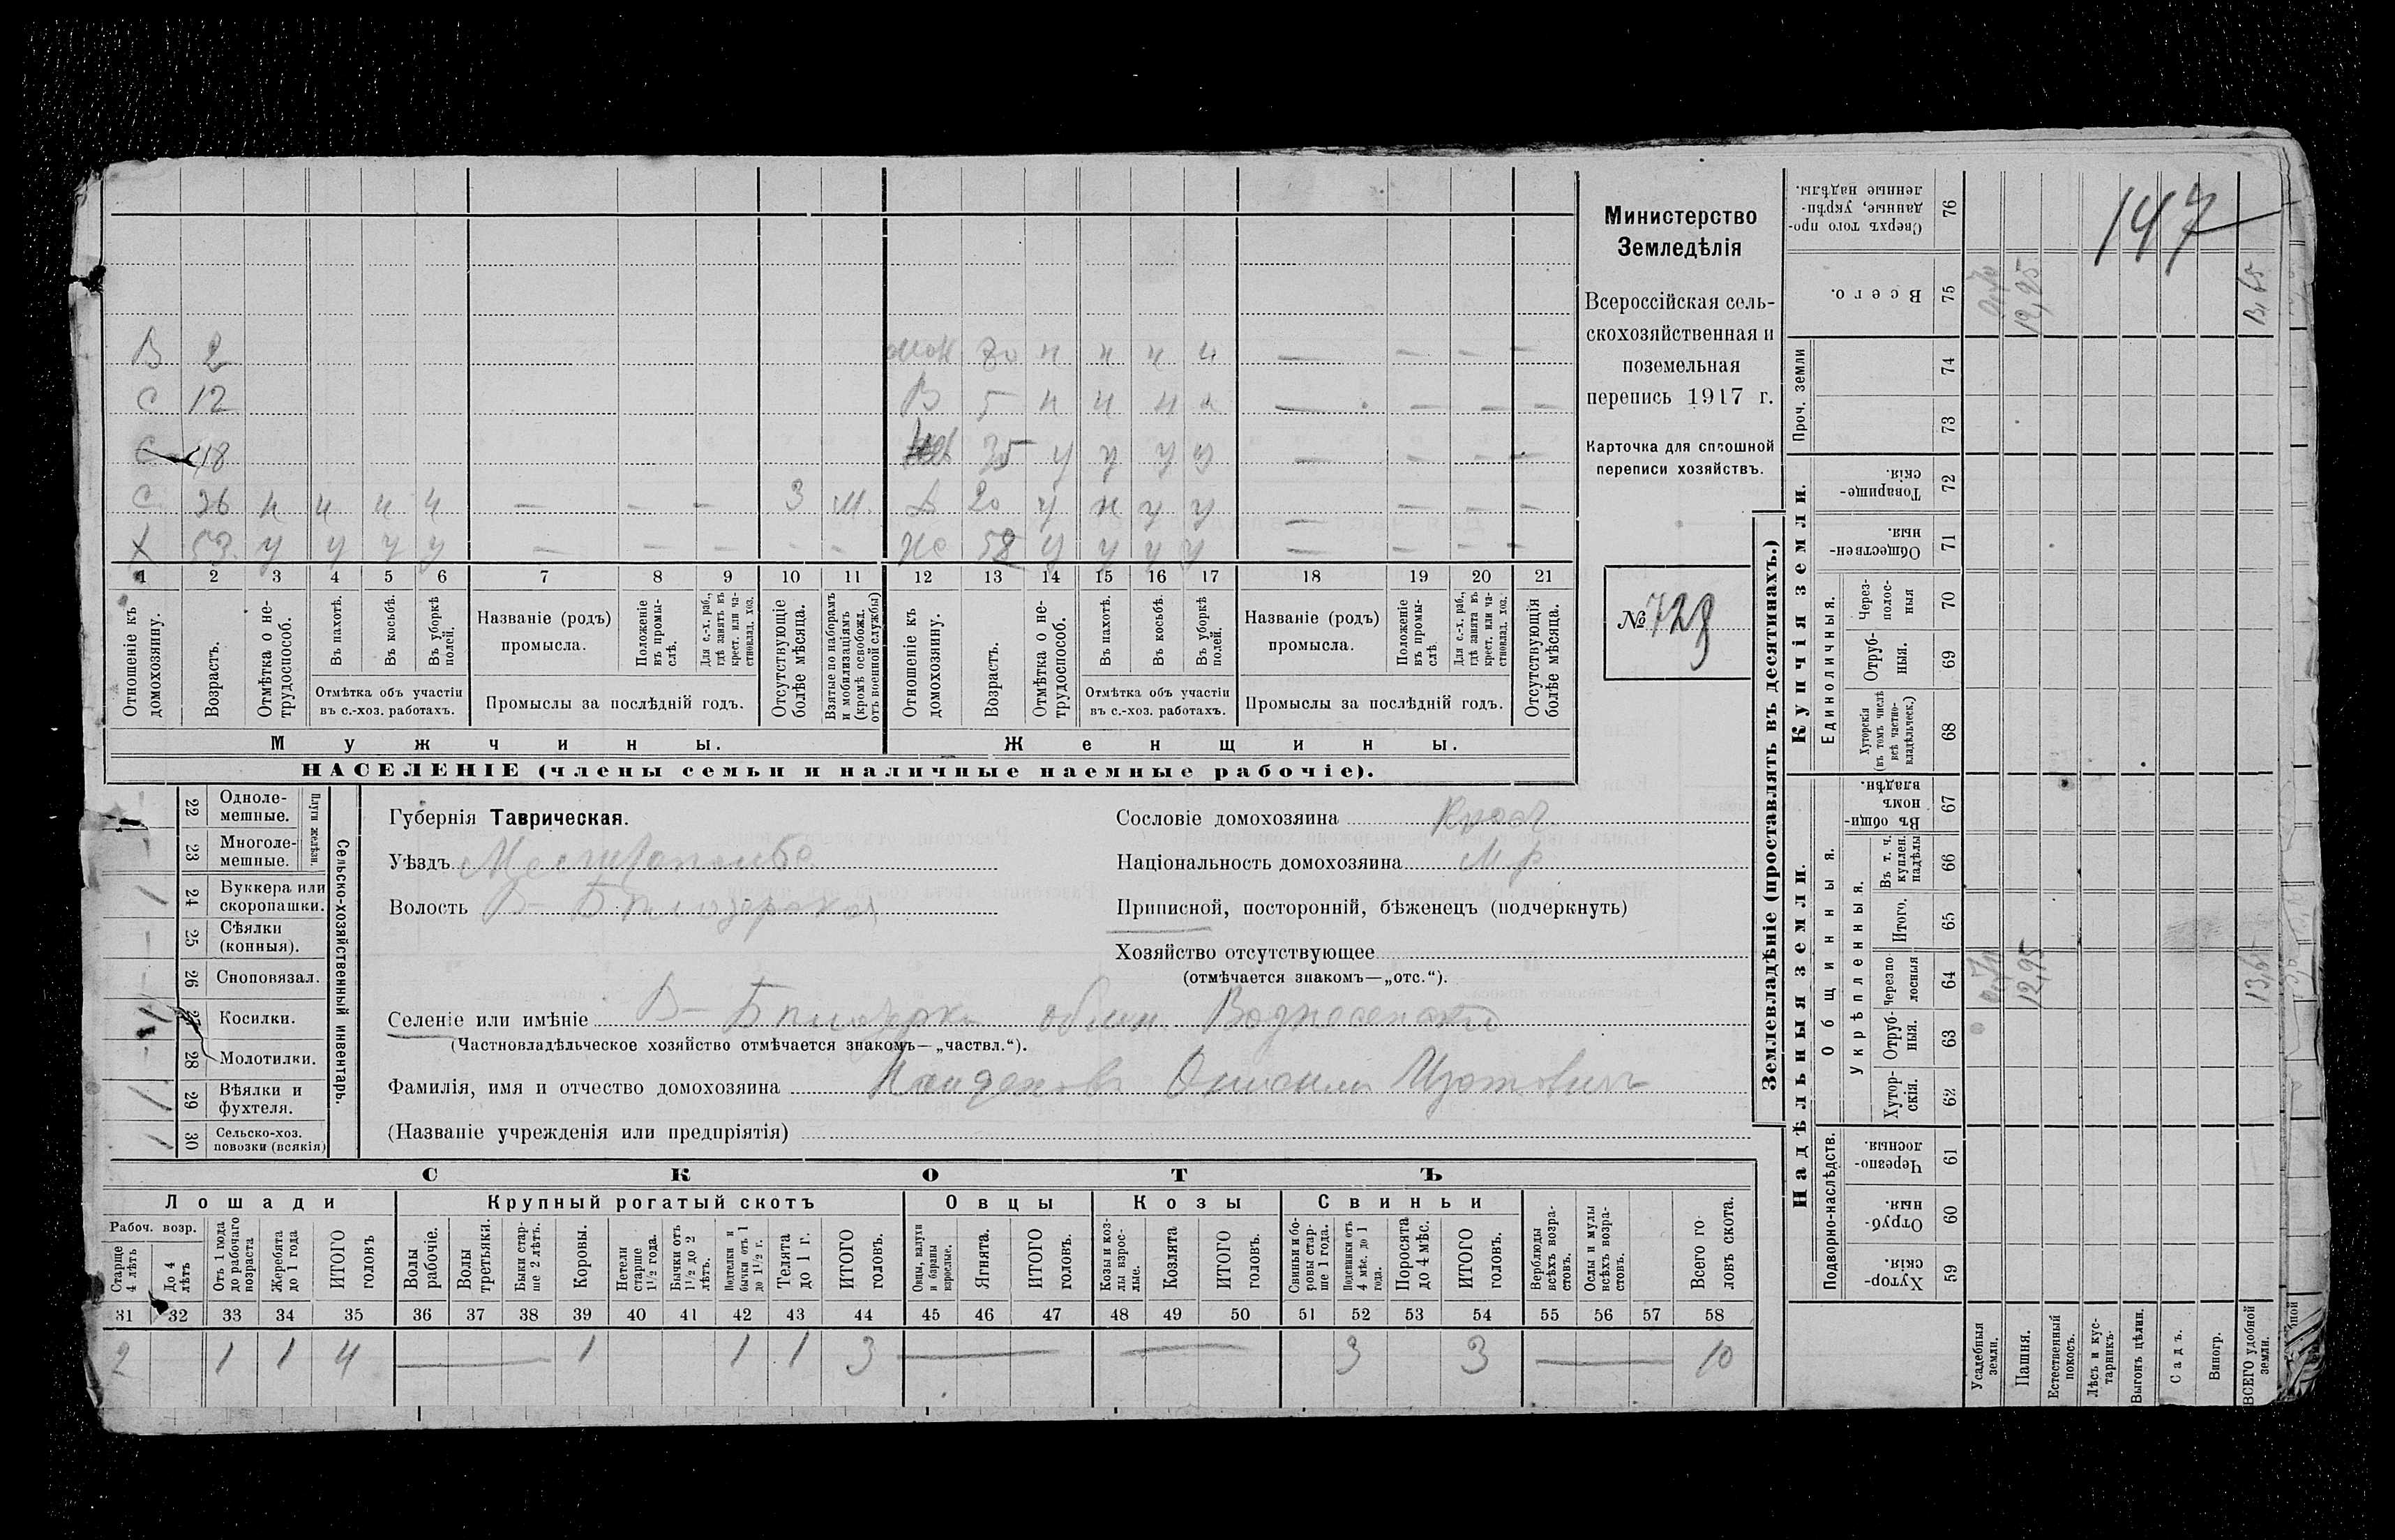 147
Министерство
Земледѣлія
Всероссійская сель-
скохозяйственная и
поземельная
перепись 1917 г.
Карточка для сплошной
переписи хозяйствъ.
№ 729
В 2 30 н н н н — — — —
С 12 В 5 н н н н — — — —
С 18 35 у у у у — — — —
С 26 н н н н — — — 3 м. Д 20 у н у у — — — —
Х 53 у у у у — — — — — Же 58 у у у у — — — —
1 2 3 4 5 6 7 8 9 10 11 12 13 14 15 16 17 18 19 20 21
Отношеніе къ домохозяину.
Возрастъ.
Отмѣтка о не-трудоспособ.
Въ пахотѣ.
Въ косьбѣ.
Въ уборкѣ полей.
Отмѣтка объ участіи
въ с.-хоз. работахъ.
Названіе (родъ)
промысла.
Положеніе въ промы-слѣ.
Для с.-х. раб., гдѣ занятъ въ крест. или ча-стновлад. хоз.
Промыслы за послѣдній годъ.
Отсутствующіе болѣе мѣсяца.
Взятые по наборамъ и мобилизаціямъ (кромѣ освобожд. отъ военной службы)
Отношеніе къ домохозяину.
Возрастъ.
Отмѣтка о не-трудоспособ.
Въ пахотѣ.
Въ косьбѣ.
Въ уборкѣ полей.
Отмѣтка объ участіи
въ с.-хоз. работахъ.
Названіе (родъ)
промысла.
Положеніе въ промы-слѣ.
Для с.-х. раб., гдѣ занята въ крест. или ча-стновлад. хоз.
Промыслы за послѣдній годъ.
Отсутствующія болѣе мѣсяца.
Мужчины. Женщины.
НАСЕЛЕНІЕ (члены семьи и наличные наемные рабочіе).
Сельско-хозяйственный инвентарь.
Плуги желѣзн.
22 Одноле-мешные.
23 Многоле-мешные.
1 24 Буккера или скоропашки.
25 Сѣялки (конныя).
26 Сноповязал.
1 27 Косилки.
28 Молотилки.
1 29 Вѣялки и фухтеля.
1 30 Сельско-хоз. повозки (всякія)
Губернія Таврическая.
Уѣздъ
Волость В-Бѣлозерская
Сословіе домохозяина Крест
Національность домохозяина М р
Приписной, посторонній, бѣженецъ (подчеркнуть)
Хозяйство отсутствующее
(отмѣчается знакомъ—„отс.“).
Селеніе или имѣніе В-Бѣлозерка общ. Вознесенское
(Частновладѣльческое хозяйство отмѣчается знакомъ—„частвл.“).
Фамилія, имя и отчество домохозяина Изотовичъ
(Названіе учрежденія или предпріятія)
СКОТЪ
Лошади Крупный рогатый скотъ Овцы Козы Свиньи
Рабоч. возр.
Старше 4 лѣтъ
До 4 лѣтъ
Отъ 1 года до рабочаго возраста
Жеребята до 1 года
ИТОГО головъ
Волы рабочіе.
Волы третьяки.
Быки стар-ше 2 лѣтъ.
Коровы.
Нетели старше 1½ года.
Бычки отъ 1½ до 2 лѣтъ.
Подтелки и бычки отъ 1 до 1½ г.
Телята до 1 г.
ИТОГО головъ.
Овцы, валухи и бараны взрослые.
Ягнята.
ИТОГО головъ.
Козы и коз-лы взрос-лые.
Козлята
ИТОГО головъ.
Свиньи и бо-ровы стар-ше 1 года.
Подсвинки отъ 4 мѣс. до 1 года.
Поросята до 4 мѣс.
ИТОГО головъ.
Верблюды всѣхъ возра-стовъ.
Ослы и мулы всѣхъ возра-стовъ.
Всего го-ловъ скота.
31 32 33 34 35 36 37 38 39 40 41 42 43 44 45 46 47 48 49 50 51 52 53 54 55 56 57 58
2 1 1 4 — 1 1 1 3 — — 3 3 — 10
Землевладѣніе (проставлять въ десятинахъ.)
Надѣльныя земли. Купчія земли.
Подворно-наслѣдств.
Общинныя.
Укрѣпленныя.
Единоличныя.
Проч. земли
Хутор-скія. 59
Отруб-ныя. 60
Черезпо-лосныя. 61
Хутор-скія. 62
Отруб-ныя. 63
Черезпо-лосныя 64 12,95 13,65
Итого. 65
Въ т. ч. куплен. надѣлы 66
Въ общин-номъ владѣн. 67
Хуторскія (въ томъ числѣ всѣ частно-владѣльческ.) 68
Отруб-ныя. 69
Через-полос-ныя 70
Обществен-ныя. 71
Товарище-скія. 72
73
74
Всего. 75 12,95 13,65
Сверхъ того про-данные, укрѣп-ленные надѣлы. 76
Усадебныя земли.
Пашня.
Естественный покосъ.
Лѣсъ и кус-тарникъ.
Выгонъ цѣлин.
Садъ.
Виногр.
ВСЕГО удобной земли.